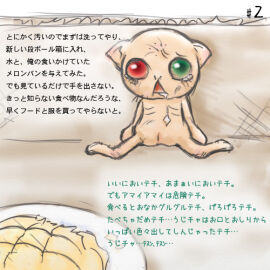 #2
とにかく汚いのでまずは洗ってやり、
新しい段ボール箱に入れ、
水と、俺の食いかけていた
メロンパンを与えてみた。
でも見ているだけで手を出さない。
きっと知らない食べ物なんだろうな、
早くフードと服を買ってやらないと。
いいにおいテチ、あまぁいにおいテチ。
でもアマイアマイは危険テチ。
食べるとおなかグルグルテチ、げろげろテチ。
たべちゃだめテチ…うじチャはお口とおしりから
いっぱい色々出してしんじゃったテチ…
うじチャ…テスン、テスン…